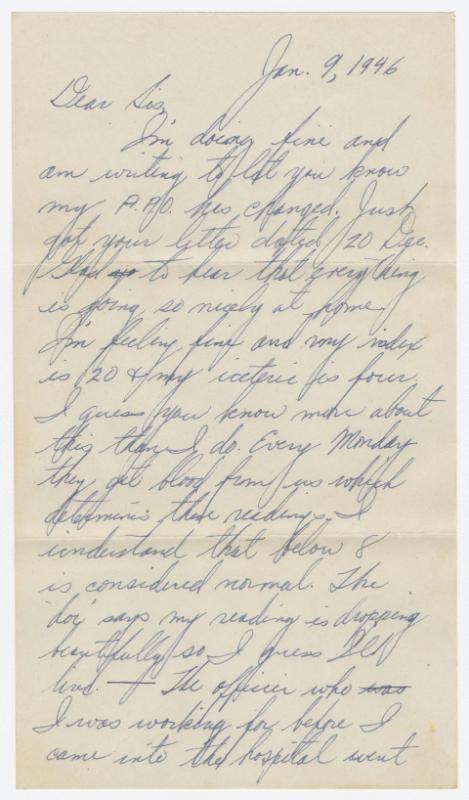 Jan. 9, 1946
Dear Sis,
I'm doing fine and
am writing to let you know
my A.P.O. has changed. Just
got your letter dated 20 Dec.
Glad to hear that everything
is going so nicely at home.
I'm feeling fine and my index
is 20 & my icteric is four.
I guess you know more about
this than I do. Every Monday
they get blood from us which
determines these readings. I
understand that below 8
is considered normal. The
'doc' says my reading is dropping
beautifully so I guess I'll
live. — The officer who was
I was working for before I
came into the hospital went